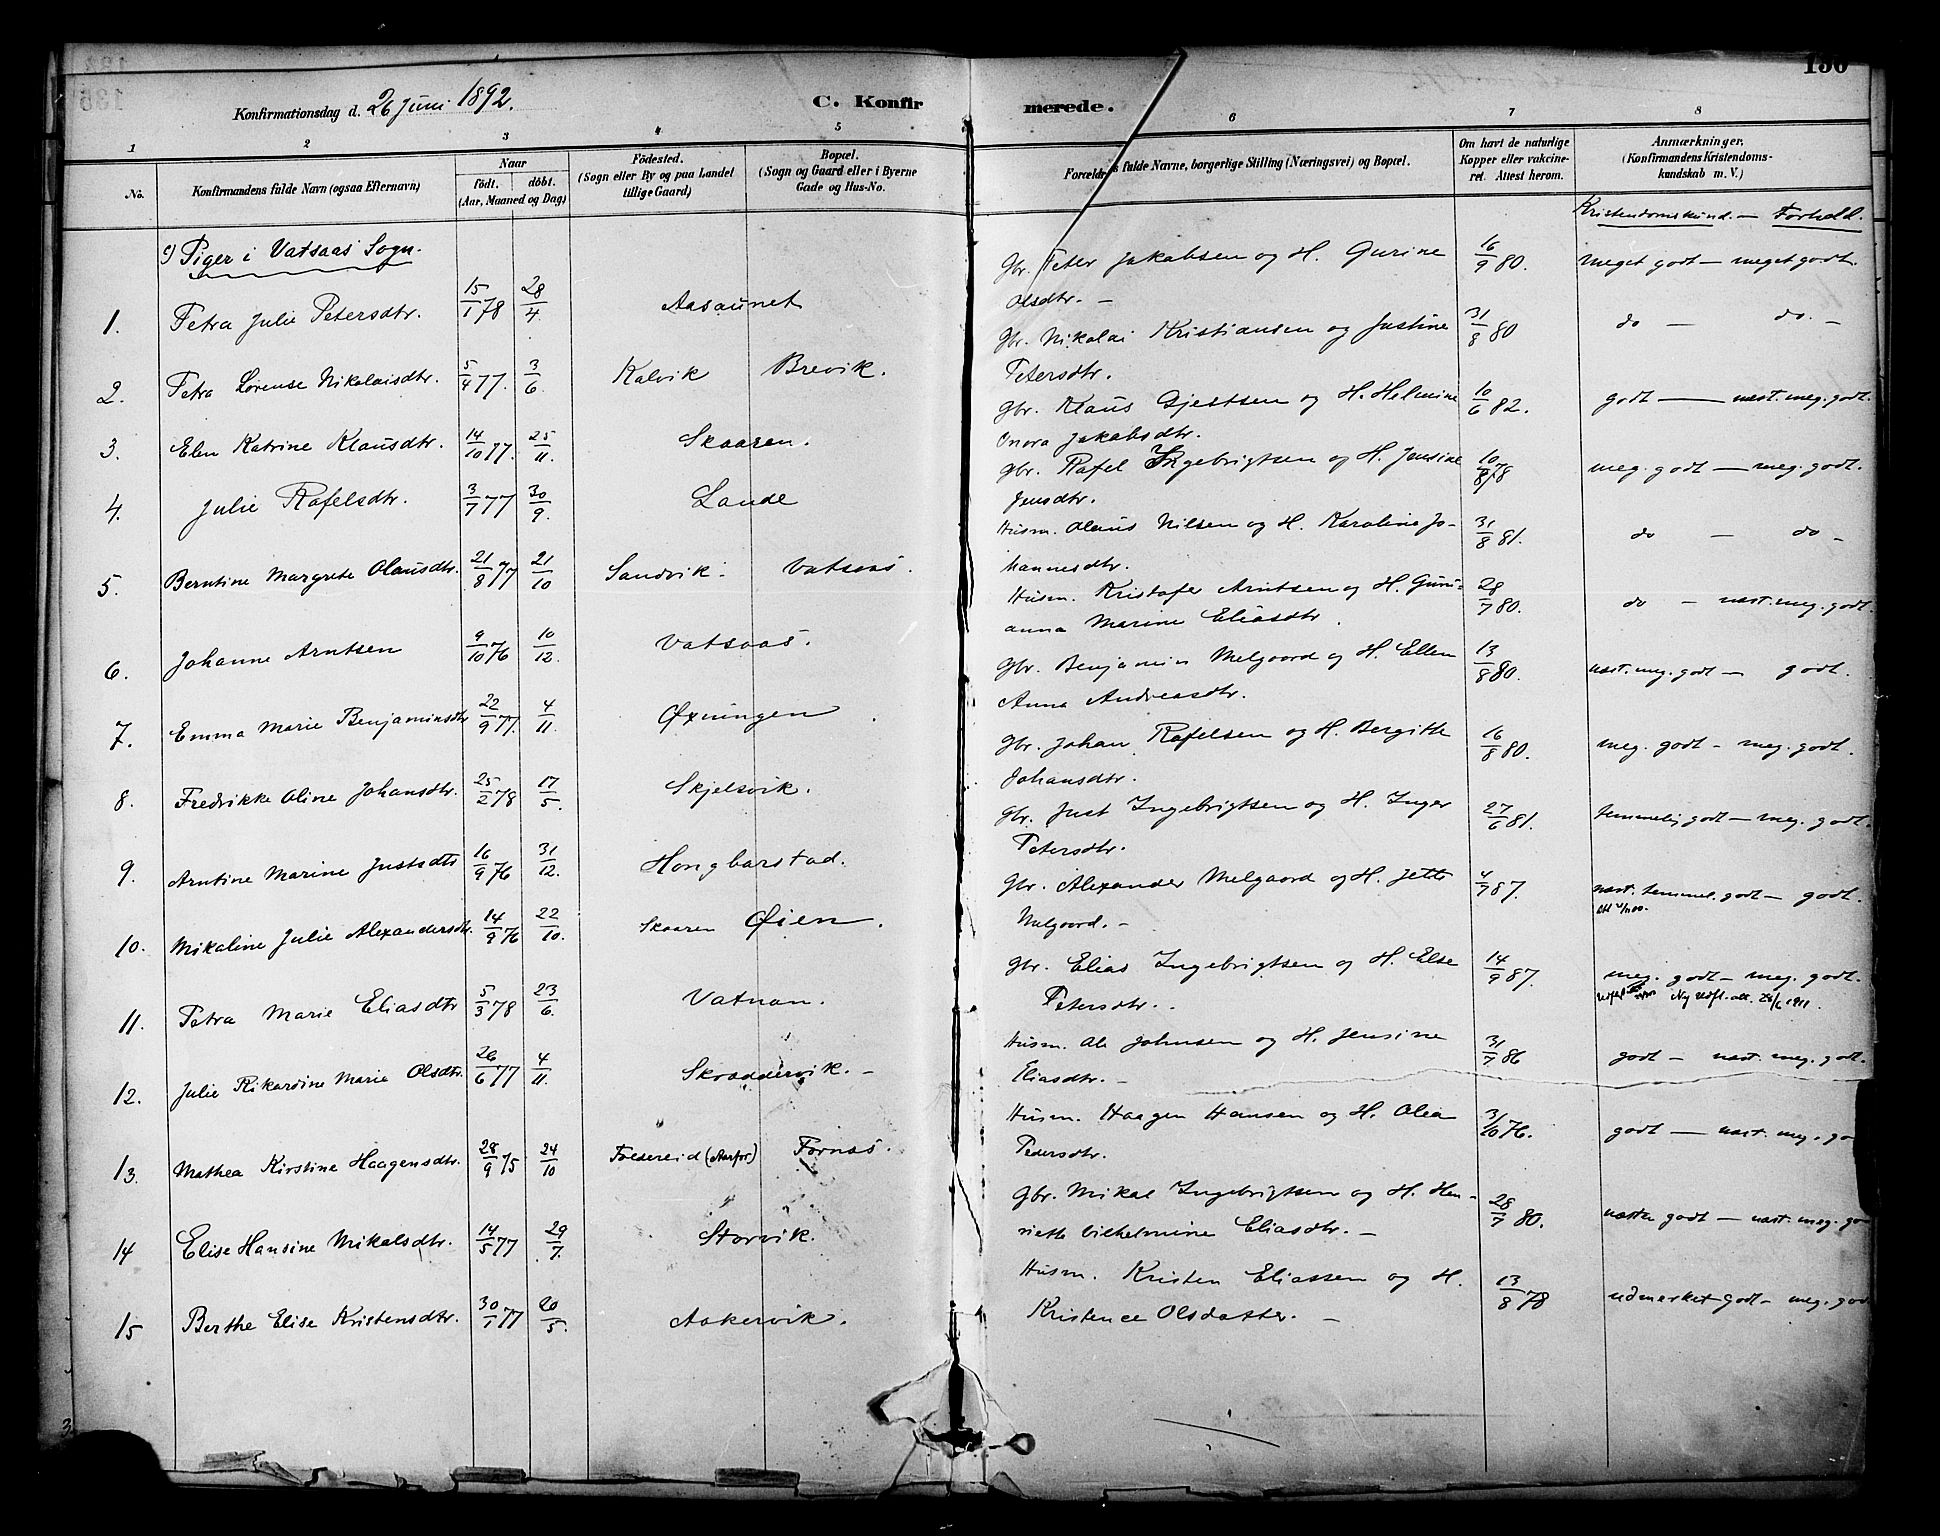 136
Konfirmationsdag d. 26 Juni 1892.
C. Konfirmerede.
1 2 3 4 5 6 7 8
No.
Konfirmandens fulde Navn (ogsaa Efternavn)
Naar
født. døbt.
(Aar, Maaned og Dag)
Fødested.
(Sogn eller By og paa Landet
tillige Gaard)
Bopæl.
(Sogn og Gaard eller i Byerne
Gade og Hus-No.
Forældres fulde Navne, borgerlige Stilling (Næringsvei) og Bopæl.
Om havt de naturlige
Kopper eller vakcine-
ret. Attest herom.
Anmærkninger.
(Konfirmandens Kristendoms-
kundskab m. V.)
Kristendomskund. — Forhold.
c) Piger i Vatsaas Sogn.
1. Petra Julie Petersdtr. 15/1 78 28/4. Aasaunet Gbr. Peter Jakobsen og H. Gurine 16/9 80. meget godt — meget godt.
Olsdtr. —
2. Petra Lorense Nikolaisdtr. 5/4 77. 3/6. Kalvik Brevik. Gbr. Nikolai Kristiansen og Justine 31/8 80 do — do. —
Petersdtr.
3. Elen Katrine Klausdtr. 14/10 77. 25/11. Skaaren. Gbr. Klaus Gjertsen og H. Helmine 10/6 82. godt — næst. meg. godt.
Onora Jakobsdtr.
4. Julie Rafelsdtr. 3/7 77 30/9. Lande Gbr. Rafel Ingebrigtsen og H. Jensine 10/8 78 meg. godt — meg. godt.
Jensdtr.
5. Berntine Margrete Olausdtr. 21/8 77 21/10 Sandvik. Vatsaas. Husm. Olaus Nilsen og H. Karoline Jo- 31/8 81. do — do —
hannesdtr.
6. Johanne Arntsen 9/10 76 10/12. Vatsaas. Husm. Kristofer Arntsen og H. Guru- 28/7 80. do — næst. meg. godt.
anna Marine Eliasdtr.
7. Emma Marie Benjaminsdtr 22/9 77. 4/11. Øxningen. Gbr. Benjamin Melgaard og H. Ellen 13/8 80. næst. meg. godt — godt.
Anna Andreasdtr.
8. Fredrikke Oline Johansdtr. 25/2 78 17/5. Skjelsvik. Gbr. Johan Rafelsen og H. Bergitte 16/8 80. meg. godt — meg. godt.
Johansdtr.
9. Arntine Marine Justsdtr 16/9 76 31/12. Hongbarstad. Gbr. Just Ingebrigtsen og H. Inger 27/6 81. temmelig godt — meg. godt.
Petersdtr.
10. Mikaline Julie Alexandersdtr. 14/9 76 22/10. Skaaren Øien. Gbr. Alexander Melgaard og H. Jette 4/9 87. næst. temmel. godt — godt.
Melgaard. —
11. Petra Marie Eliasdtr 5/3 78 23/6. Vatnan. Gbr. Elias Ingebrigtsen og H. Else 14/9 87. meg. godt — meg. godt.
Petersdtr. Ny udfl. att. 1911.
12. Julie Rikardine Marie Olsdtr. 26/6 77 4/11. Skraddervik. — Husm. Ole Johnsen og H. Jensine 31/7 86 godt — næst. meg. godt.
Eliasdtr. —
13. Mathea Kirstine Haagensdtr. 28/9 75 24/10 Foldereid (Aarfor) Fornæs. Husm. Haagen Hansen og H. Olea 3/10 76. godt — næst. meg. go
Pedersdtr.
14 Elise Hansine Mikalsdtr. 14/5 77 29/7. Storvik. Gbr. Mikal Ingebrigtsen og H. Hen- 28/7 80. næsten godt — næst. meg. go
riette Vilhelmine Eliasdtr. —
15 Berthe Elise Kristensdtr. 30/1 77 20/5. Aakervik. Husm. Kristen Eliassen og H. 13/8 78 udmærket godt — meg. god
Kristence Olsdatter. —